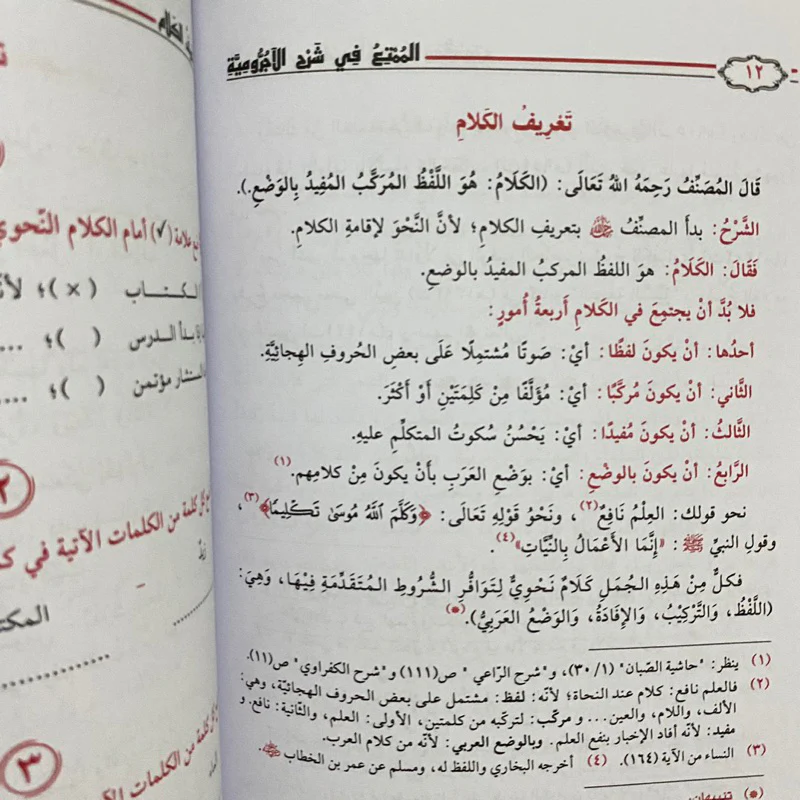 ١٢
المُمْتِعُ فِي شَرْحِ الآجُرُّومِيَّةِ
تَعْرِيفُ الكَلامِ
قَالَ المُصَنِّفُ رَحِمَهُ اللهُ تَعَالَى: (الكَلَامُ: هُوَ اللَّفْظُ المُرَكَّبُ المُفِيدُ بِالوَضْعِ.).
الشَّرْحُ: بدأَ المصنِّفُ ﵀ بتعريفِ الكلامِ؛ لأنَّ النَّحْوَ لإقامةِ الكلامِ.
فَقَالَ: الكَلَامُ: هوَ اللفظُ المركبُ المفيدُ بالوضعِ.
فلا بُدَّ أنْ يجتمِعَ في الكَلَامِ أَربعةُ أُمورٍ:
أحدُها: أنْ يكونَ لفظًا: أيْ: صَوتًا مُشتمِلًا عَلَى بعضِ الحُروفِ الهِجائيَّةِ.
الثَّاني: أنْ يكونَ مُركَّبًا: أيْ: مُؤَلَّفًا مِنْ كَلِمَتَيْنِ أَوْ أَكْثَرَ.
الثَّالثُ: أنْ يكونَ مُفيدًا: أيْ: يَحْسُنُ سُكوتُ المتكلِّمِ عليهِ.
الرَّابعُ: أنْ يكونَ بالوضْعِ: أيْ: بوَضْعِ العَرَبِ بأَنْ يكونَ مِنْ كلامِهم.(١)
نحو قولك: العِلْمُ نَافِعٌ(٢)، ونَحْوُ قَوْلِهِ تَعَالَى: ﴿وَكَلَّمَ ٱللَّهُ مُوسَىٰ تَكْلِيمًا﴾(٣)،
وقولِ النبيِّ ﷺ: «إِنَّمَا الأَعْمَالُ بِالنِّيَّاتِ»(٤).
فكلٌّ مِنْ هَذِهِ الجُمَلِ كَلَامٌ نَحْوِيٌّ لِتَوَافُرِ الشُّرُوطِ المُتَقَدِّمَةِ فِيْهَا، وَهِيَ:
(اللَّفْظُ، وَالتَّرْكِيْبُ، وَالإِفَادَةُ، وَالوَضْعُ العَرَبِيُّ).(*)
(١) ينظر: "حاشية الصّبان" (٣٠/١)، و"شرح الرّاعي" ص(١١١) و"شرح الكفراوي" ص(١١).
(٢) فالعلم نافع: كلام عند النحاة؛ لأنّه: لفظ: مشتمل على بعض الحروف الهجائيّة، وهي:
الألف، واللام، والعين... و مركّب: لتركّبه من كلمتين، الأولى: العلم، والثّانية: نافع. و
مفيد: لأنّه أفاد الإخبار بنفع العلم. وبالوضع العربي: لأنّه من كلام العرب.
(٣) النساء من الآية (١٦٤). (٤) أخرجه البخاري واللفظ له، ومسلم عن عمر بن الخطاب ﵁.
(*) تنبيهان:
علامة (✓) أمام الكلام النّحوي
الـكـتـاب (×)؛ لأنّ
بدأ الـدرس ( )؛ ...
مستشار مؤتمن ( )؛ ...
٢
كل كلمة من الكلمات الآتية في
المكت
٣
كل كلمة من الكلمات